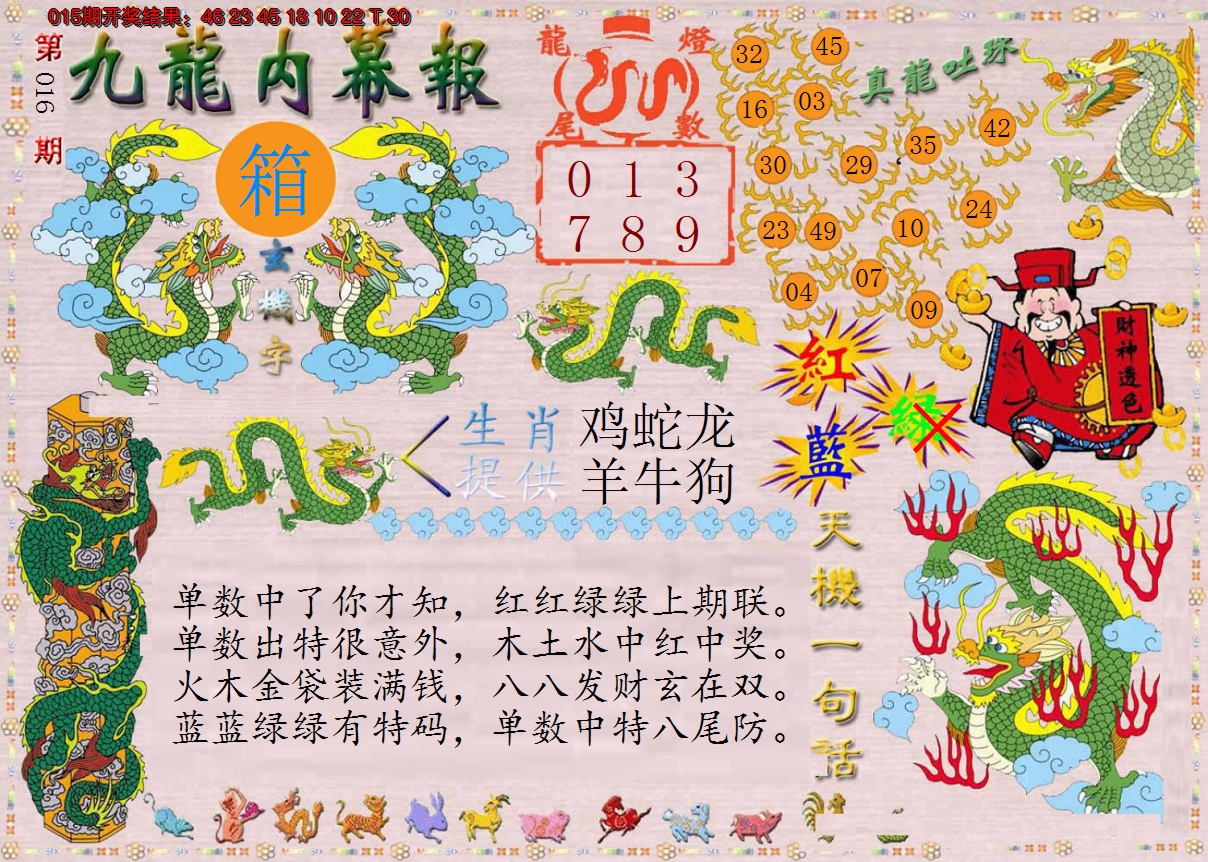 015期开奖结果：46 23 45 18 10 22 T 30
第016期
九龍内幕報
箱
玄機字
龍燈尾數
0 1 3
7 8 9
真龍吐珠
32 45
16 03
35 42
30 29
24
23 49 10
04 07
09
紅
綠
藍
財神透色
生肖提供
鸡蛇龙
羊牛狗
天機一句话
单数中了你才知，红红绿绿上期联。
单数出特很意外，木土水中红中奖。
火木金袋装满钱，八八发财玄在双。
蓝蓝绿绿有特码，单数中特八尾防。